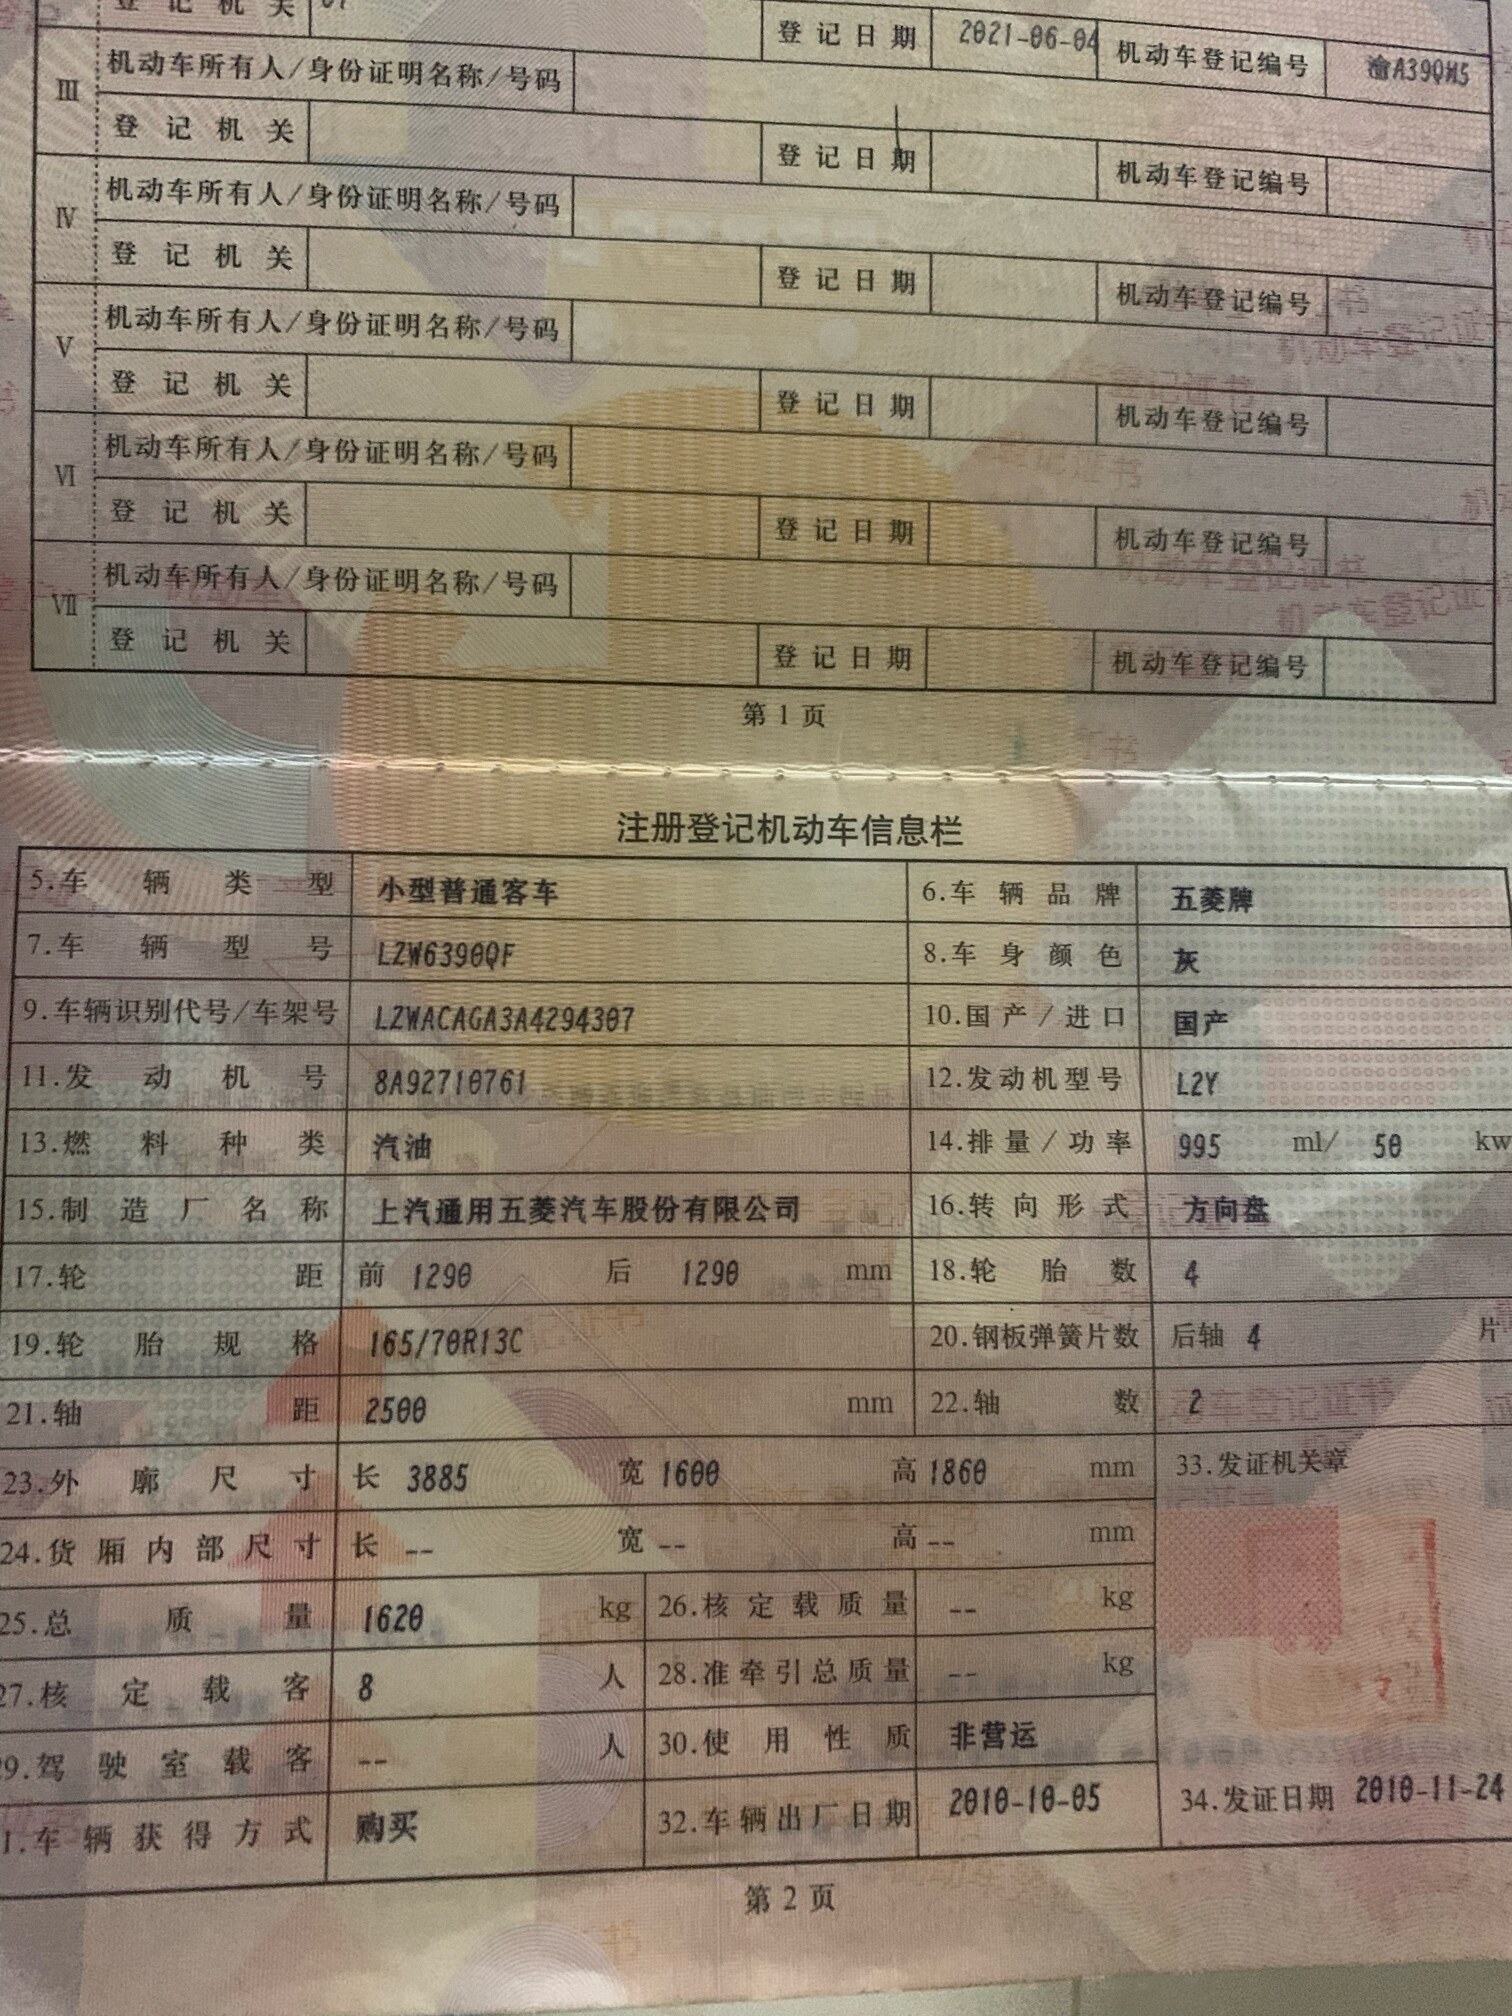 登记机关
登记日期 2021-06-04 机动车登记编号 渝A39QM5
Ⅲ 机动车所有人/身份证明名称/号码
登记机关 登记日期 机动车登记编号
Ⅳ 机动车所有人/身份证明名称/号码
登记机关 登记日期 机动车登记编号
Ⅴ 机动车所有人/身份证明名称/号码
登记机关 登记日期 机动车登记编号
Ⅵ 机动车所有人/身份证明名称/号码
登记机关 登记日期 机动车登记编号
Ⅶ 机动车所有人/身份证明名称/号码
登记机关 登记日期 机动车登记编号
第1页
注册登记机动车信息栏
5.车辆类型 小型普通客车 6.车辆品牌 五菱牌
7.车辆型号 LZW6390QF 8.车身颜色 灰
9.车辆识别代号/车架号 LZWACAGA3A4294307 10.国产/进口 国产
11.发动机号 8A92710761 12.发动机型号 L2Y
13.燃料种类 汽油 14.排量/功率 995 ml/ 50 kw
15.制造厂名称 上汽通用五菱汽车股份有限公司 16.转向形式 方向盘
17.轮距 前 1290 后 1290 mm 18.轮胎数 4
19.轮胎规格 165/70R13C 20.钢板弹簧片数 后轴 4 片
21.轴距 2500 mm 22.轴数 2
23.外廓尺寸 长 3885 宽 1600 高 1860 mm 33.发证机关章
24.货厢内部尺寸 长 -- 宽 -- 高 -- mm
25.总质量 1620 kg 26.核定载质量 -- kg
27.核定载客 8 人 28.准牵引总质量 -- kg
29.驾驶室载客 -- 人 30.使用性质 非营运
1.车辆获得方式 购买 32.车辆出厂日期 2010-10-05 34.发证日期 2010-11-24
第2页